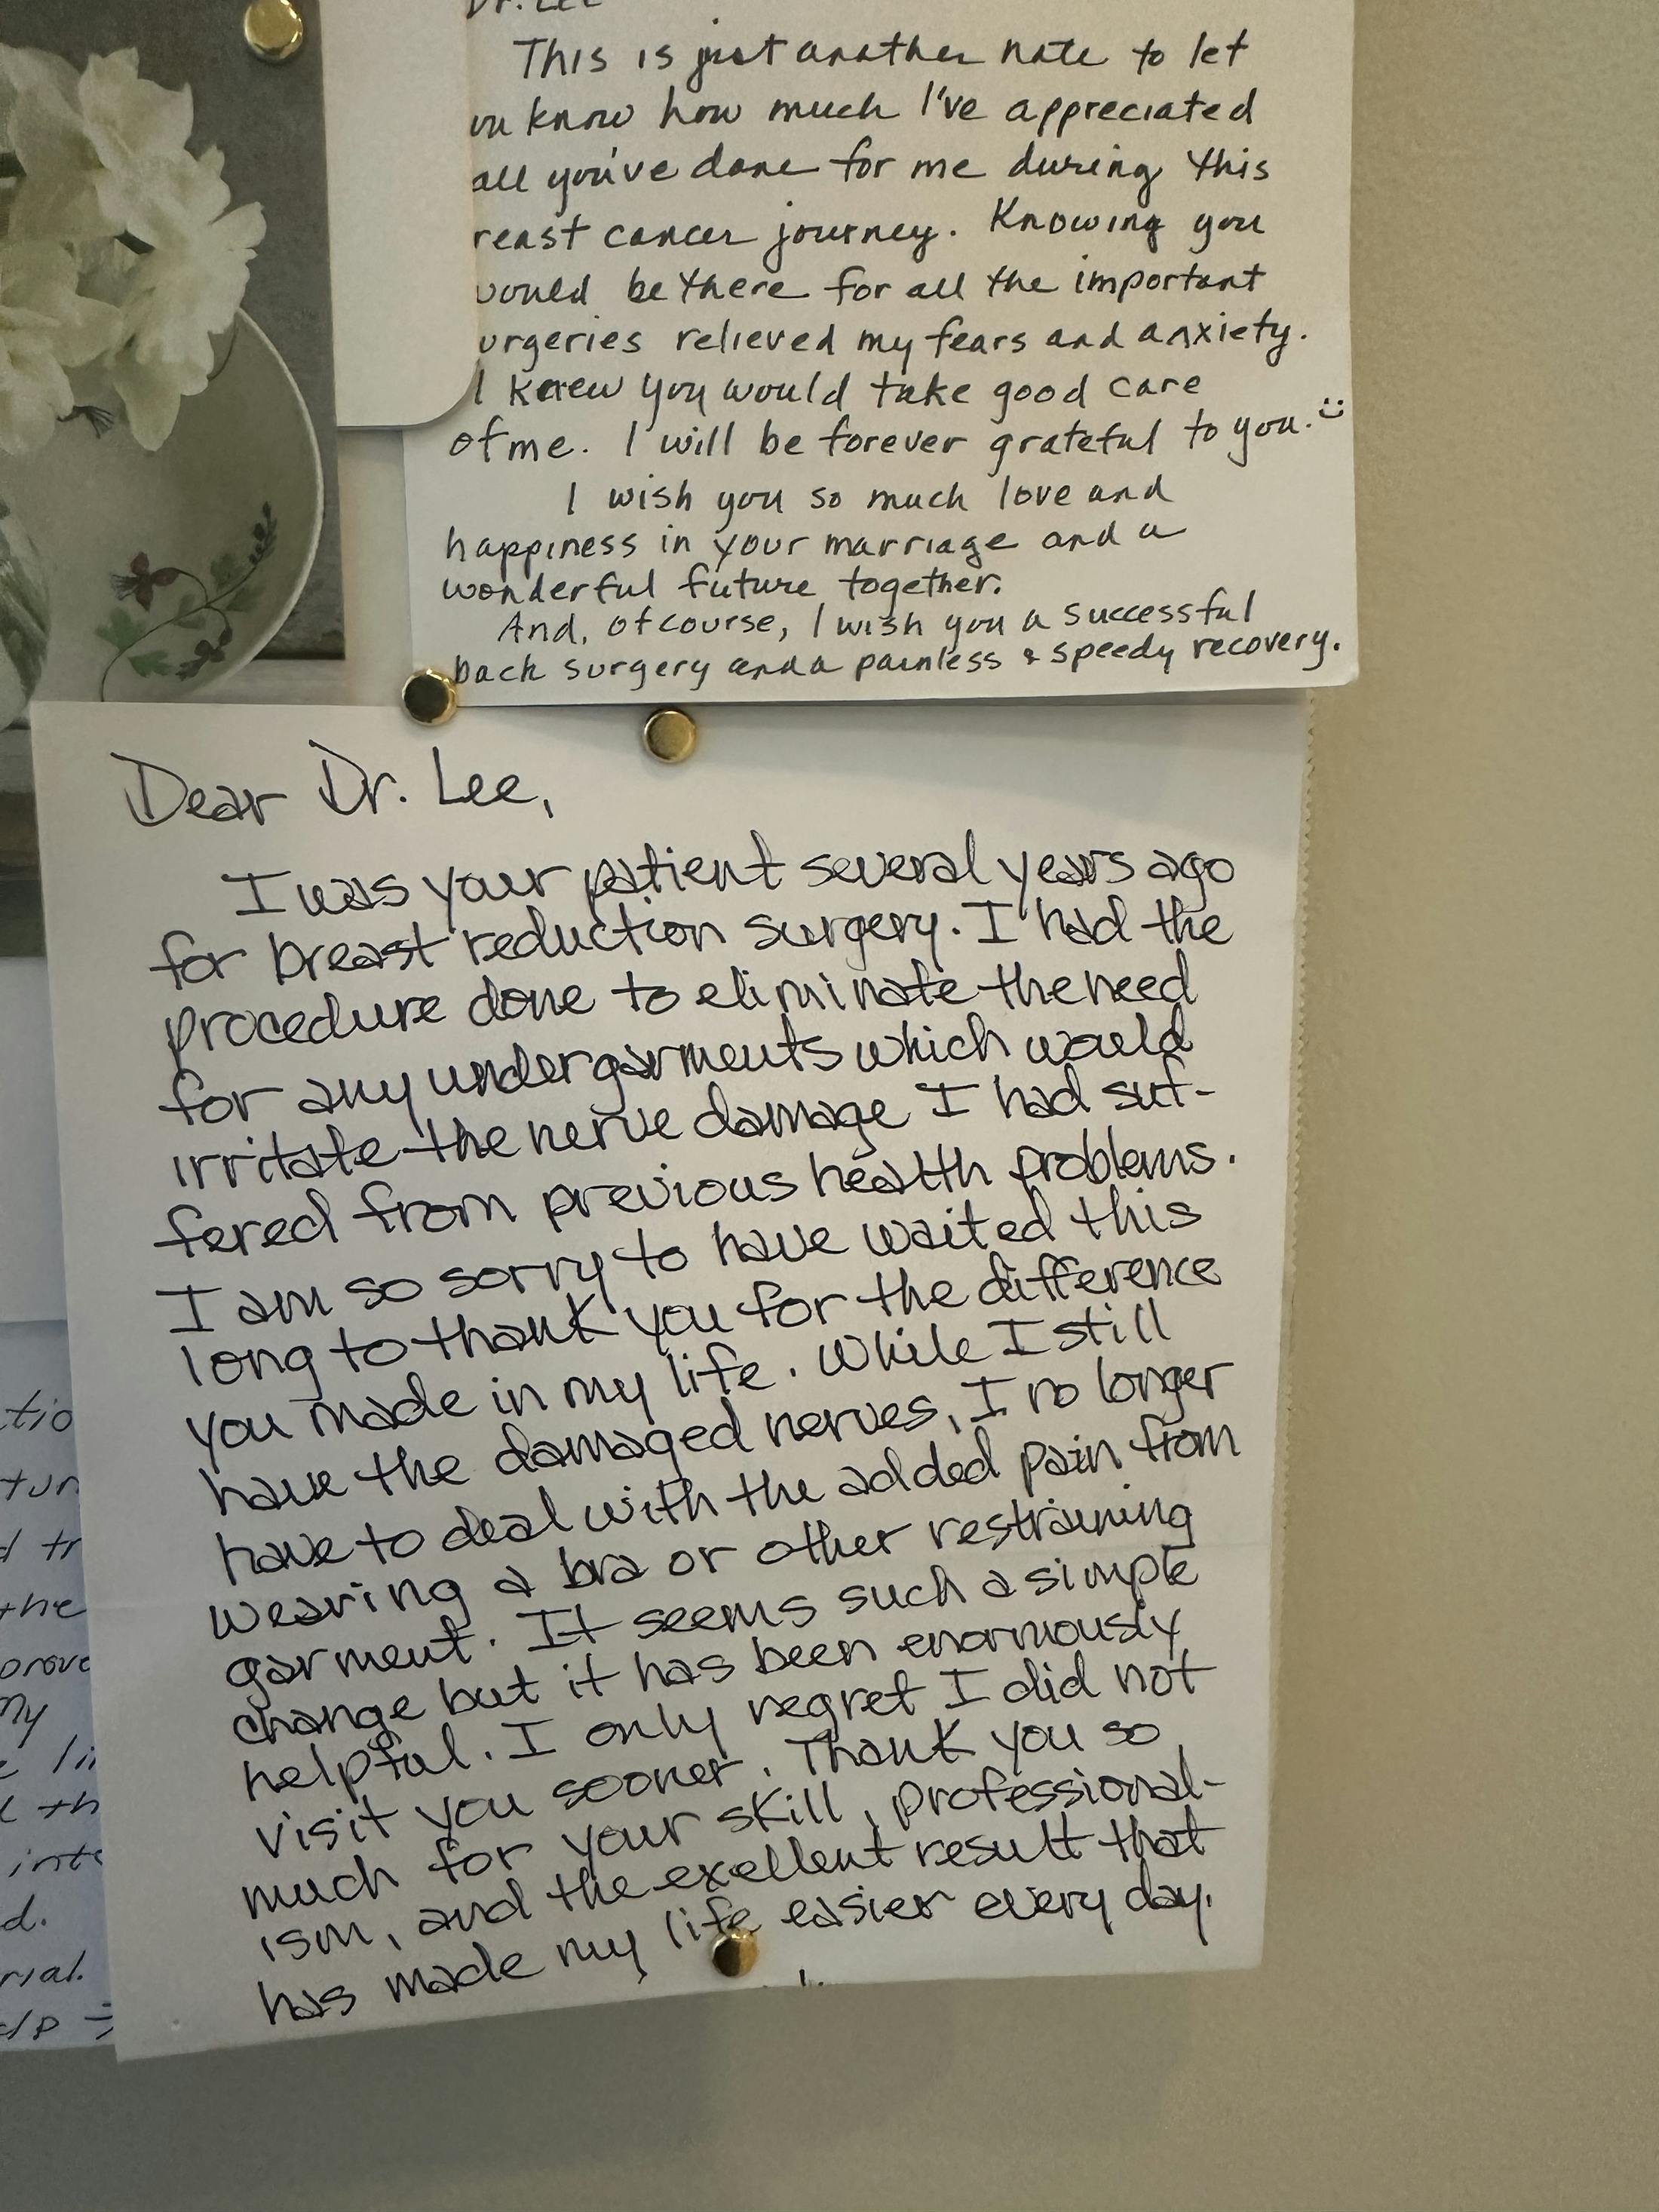 Dr. Lee
This is just another note to let
ou know how much I've appreciated
all you've done for me during this
reast cancer journey. Knowing you
would be there for all the important
urgeries relieved my fears and anxiety.
I knew you would take good care
of me. I will be forever grateful to you. :)
I wish you so much love and
happiness in your marriage and a
wonderful future together.
And, of course, I wish you a successful
back surgery and a painless & speedy recovery.
Dear Dr. Lee,
I was your patient several years ago
for breast reduction surgery. I had the
procedure done to eliminate the need
for any undergarments which would
irritate the nerve damage I had suf-
fered from previous health problems.
I am so sorry to have waited this
long to thank you for the difference
you made in my life. While I still
have the damaged nerves, I no longer
have to deal with the added pain from
wearing a bra or other restraining
garment. It seems such a simple
change but it has been enormously
helpful. I only regret I did not
visit you sooner. Thank you so
much for your skill, professional-
ism, and the exellent result that
has made my life easier every day.
tio
tur
d tr
the
prove
my
e li
l th
inte
d.
rial.